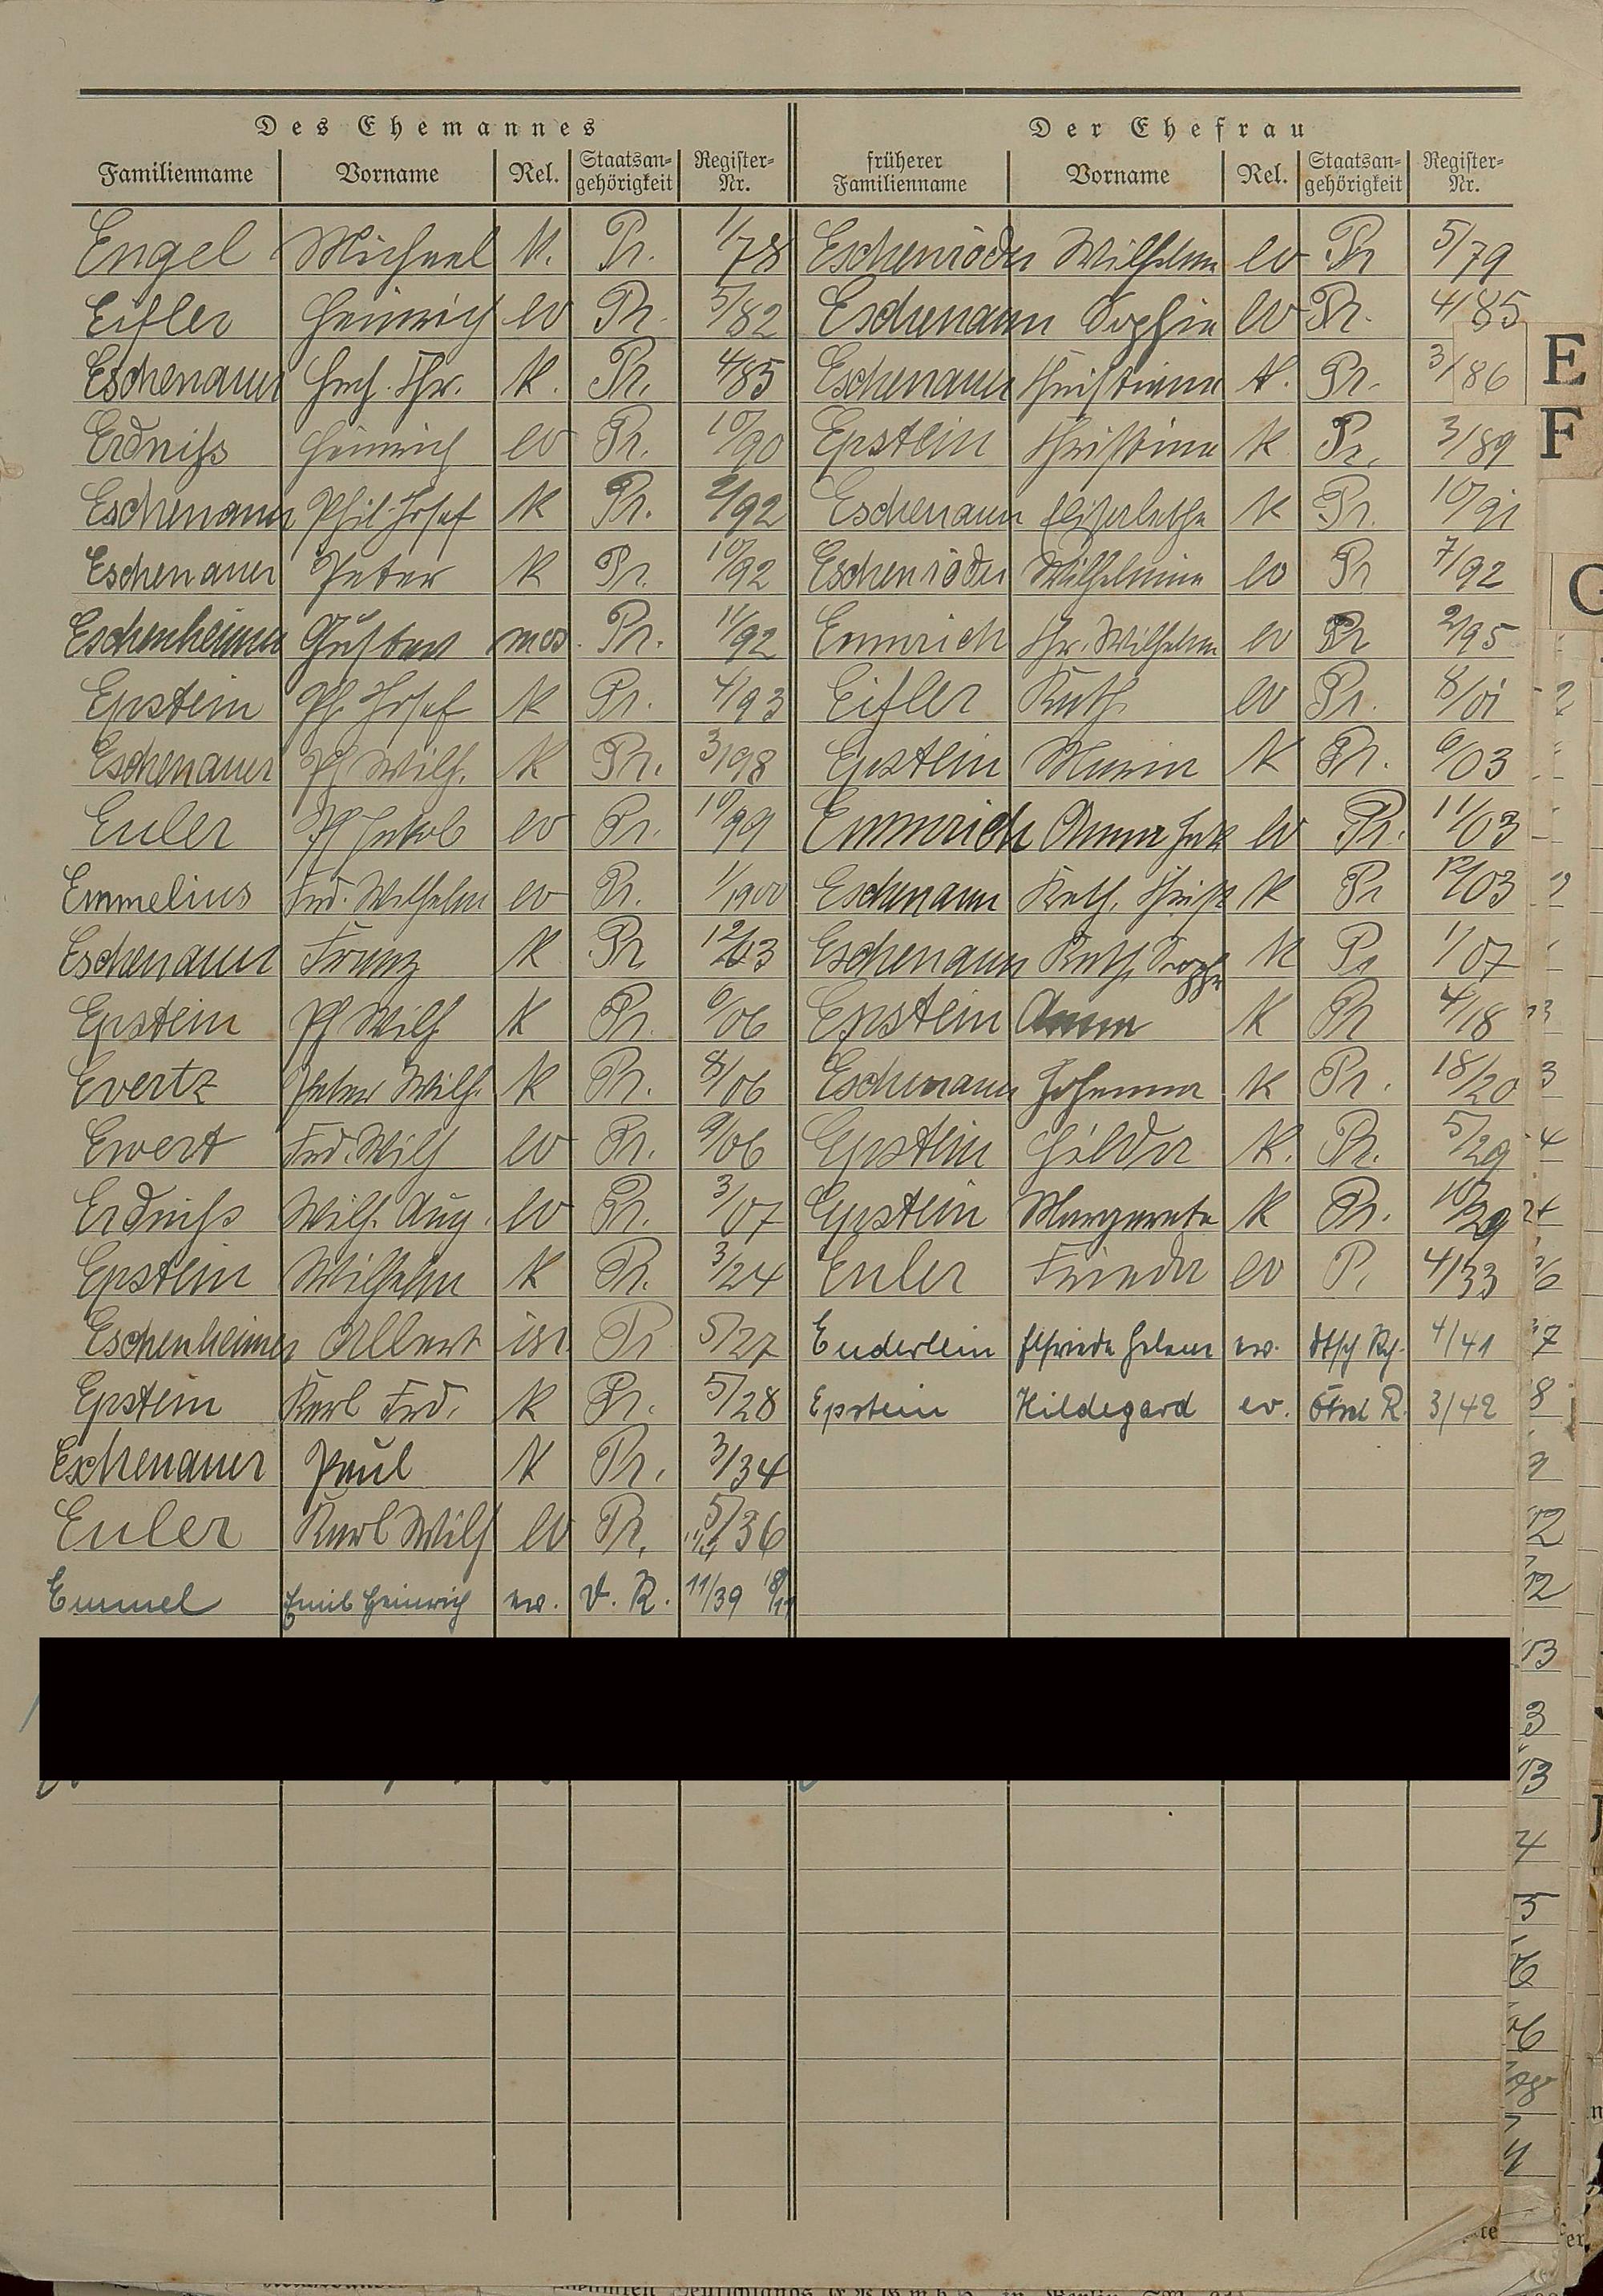 Des Ehemannes Der Ehefrau
Familienname Vorname Rel. Staatsan-gehörigkeit Register-Nr. früherer Familienname Vorname Rel. Staatsan-gehörigkeit Register-Nr.
Engel Michael K. Pr. 1/78 Eschenröder Wilhelm ev Pr 5/79
Eifler Heinrich ev Pr. 5/82 Eschenauer Sophie ev Pr. 4/85
Eschenauer Hch. Chr. K. Pr. 4/85 Eschenauer Christiane K. Pr. 3/86
Erdniß Heinrich ev Pr. 10/90 Epstein Christine K Pr. 3/89
Eschenauer Phil. Josef K Pr. 2/92 Eschenauer Elisabethe K Pr. 10/91
Eschenauer Peter K Pr. 10/92 Eschenröder Wilhelmine ev Pr 7/92
Eschenheimer Gustav mos. Pr. 11/92 Emmrich Chr. Wilhelm ev Pr 2/95
Epstein Ph. Josef K Pr. 4/93 Eifler Kath. ev Pr. 8/01
Eschenauer Ph Wilh. K Pr. 3/98 Epstein Maria K Pr. 6/03
Euler Ph Jakob ev Pr. 10/99 Emmrich Anna ev Pr. 11/03
Emmelius Frd. Wilhelm ev Pr. 1/1900 Eschenauer Kath. Christ K Pr 12/03
Eschenauer Franz K Pr 12/03 Eschenauer Kath. Sophie K Pr 1/07
Epstein Ph Wilh K Pr. 6/06 Epstein Anna K Pr 4/18
Evertz Peter Wilh. K Pr. 8/06 Eschenauer Johanna K Pr. 18/20
Ewert Frd. Wilh ev Pr. 9/06 Epstein Hilda K. Pr. 5/29
Erdniß Wilh. Aug. ev Pr. 3/07 Epstein Margareta K Pr. 10/29
Epstein Wilhelm K Pr. 3/24 Euler Frieda ev P. 4/33
Eschenheimer Albert isr. Pr 5/27 Enderlein Elfriede Helene ev. dtsch Rch. 4/41
Epstein Karl Frd. K Pr. 5/28 Epstein Hildegard ev. R. 3/42
Eschenauer Paul K Pr. 3/34
Euler Karl Wilh ev Pr. 5/36
Emmel Emil Heinrich ev. D. R. 11/39
E
F
G